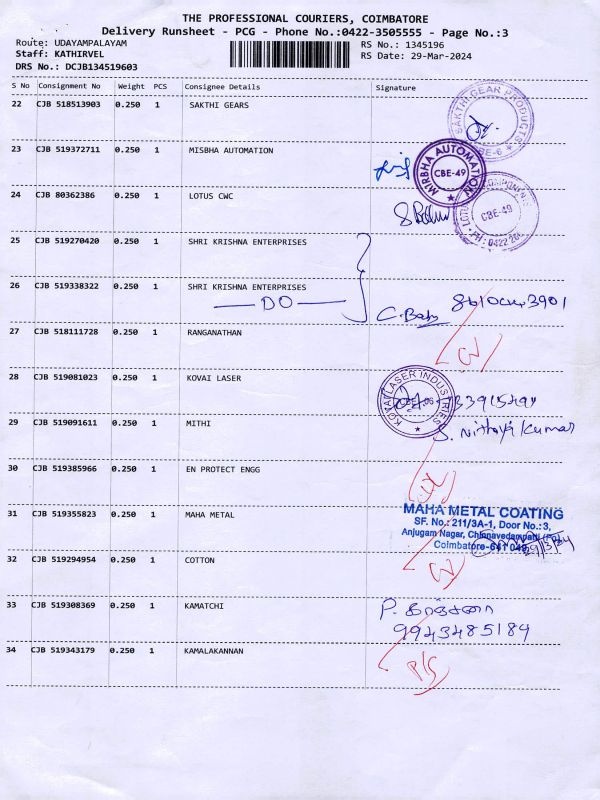 THE PROFESSIONAL COURIERS, COIMBATORE
Delivery Runsheet - PCG - Phone No.:0422-3505555 - Page No.:3
Route: UDAYAMPALAYAM
RS No.: 1345196
Staff: KATHIRVEL
RS Date: 29-Mar-2024
DRS No.: DCJB134519603
S No Consignment No Weight PCS Consignee Details Signature
22 CJB 518513903 0.250 1 SAKTHI GEARS
SAKTHI GEAR PRODUCTS
CBE-6
23 CJB 519372711 0.250 1 MISBHA AUTOMATION
MIRBHA AUTOMATION
CBE-49
24 CJB 80362386 0.250 1 LOTUS CWC
LOTUS COMPONENTS
CBE-49
25 CJB 519270420 0.250 1 SHRI KRISHNA ENTERPRISES
26 CJB 519338322 0.250 1 SHRI KRISHNA ENTERPRISES
DO
C. Babu
27 CJB 518111728 0.250 1 RANGANATHAN
28 CJB 519081023 0.250 1 KOVAI LASER
KOVAI LASER INDUSTRIES
29 CJB 519091611 0.250 1 MITHI
S. Nithaya Kumar
30 CJB 519385966 0.250 1 EN PROTECT ENGG
31 CJB 519355823 0.250 1 MAHA METAL
MAHA METAL COATING
SF. No.: 211/3A-1, Door No.: 3,
Anjugam Nagar, Chinnavedampatti (Po)
Coimbatore-641 049
32 CJB 519294954 0.250 1 COTTON
33 CJB 519308369 0.250 1 KAMATCHI
P.
9943485184
34 CJB 519343179 0.250 1 KAMALAKANNAN
P/S